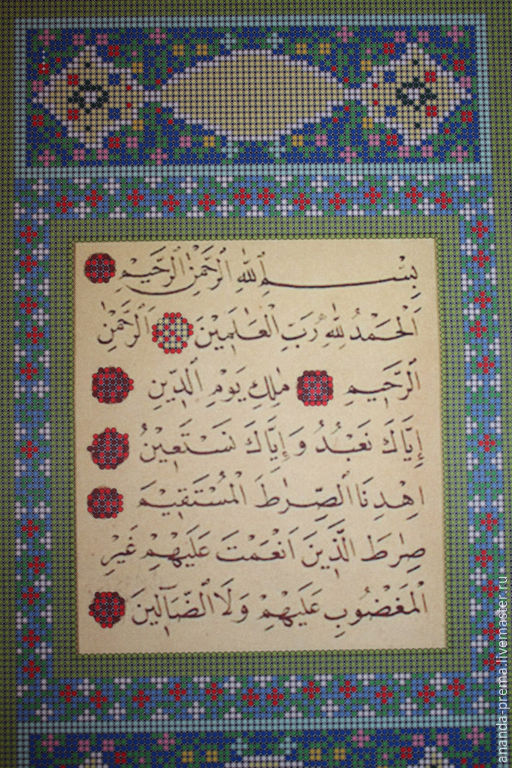 بِسْمِ اللهِ الرَّحْمٰنِ الرَّحِيمِ
اَلْحَمْدُ لِلهِ رَبِّ الْعَالَمِينَ اَلرَّحْمٰنِ
الرَّحِيمِ مٰلِكِ يَوْمِ الدِّينِ
إِيَّاكَ نَعْبُدُ وَإِيَّاكَ نَسْتَعِينُ
اِهْدِنَا الصِّرٰطَ الْمُسْتَقِيمَ
صِرٰطَ الَّذِينَ اَنْعَمْتَ عَلَيْهِمْ غَيْرِ
الْمَغْضُوبِ عَلَيْهِمْ وَلَا الضَّآلِّينَ
ananda-prema.livemaster.ru